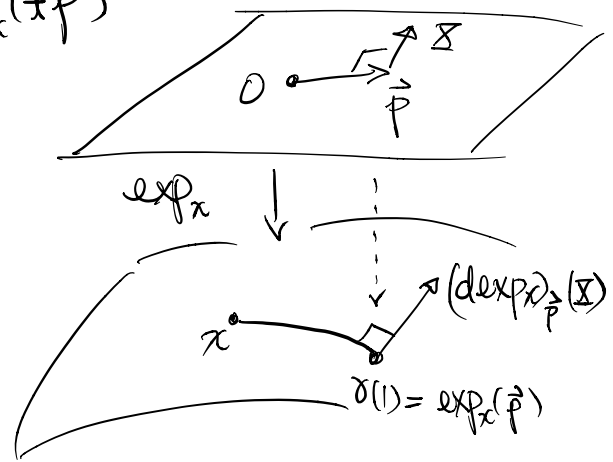 x(tp)
X
O
p⃗
exp_x
(dexp_x)_p⃗(X)
x
γ(1) = exp_x(p⃗)